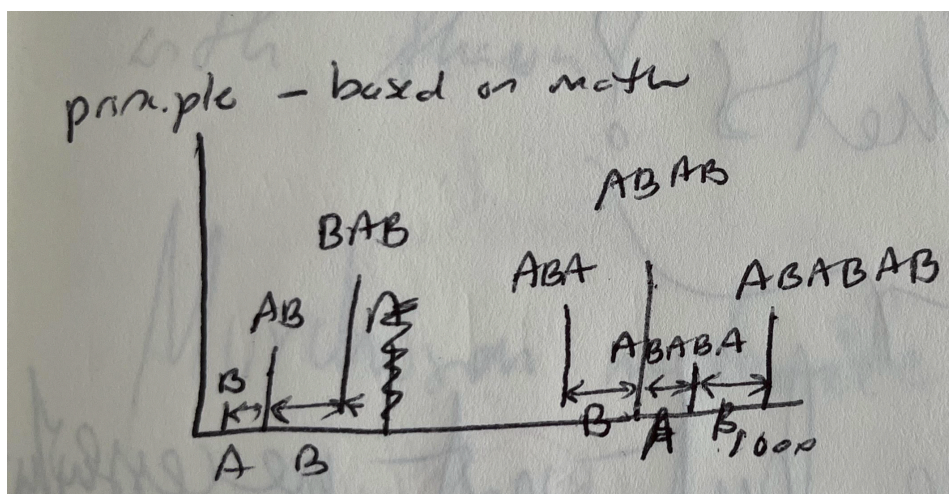 principle - based on math
ABAB
BAB
ABA
ABABAB
AB
ABABA
B
B
A
B
1000
A B